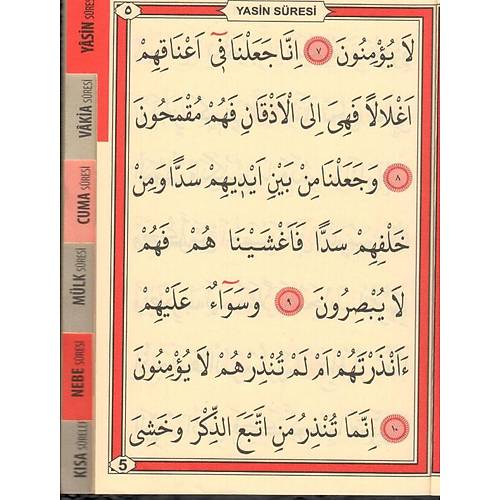 YASİN SÛRESİ
٥
لَا يُؤْمِنُونَ ٧ اِنَّا جَعَلْنَا فٓى اَعْنَاقِهِمْ
اَغْلَالًا فَهِىَ اِلَى الْاَذْقَانِ فَهُمْ مُقْمَحُونَ
٨ وَجَعَلْنَا مِنْ بَيْنِ اَيْدٖيهِمْ سَدًّا وَمِنْ
خَلْفِهِمْ سَدًّا فَاَغْشَيْنَا هُمْ فَهُمْ
لَا يُبْصِرُونَ ٩ وَسَوَٓاءٌ عَلَيْهِمْ
ءَاَنْذَرْتَهُمْ اَمْ لَمْ تُنْذِرْهُمْ لَا يُؤْمِنُونَ
١٠ اِنَّمَا تُنْذِرُ مَنِ اتَّبَعَ الذِّكْرَ وَخَشِىَ
5
YÂSİN SÛRESİ
VÂKIA SÛRESİ
CUMA SÛRESİ
MÜLK SÛRESİ
NEBE SÛRESİ
KISA SÛRELER